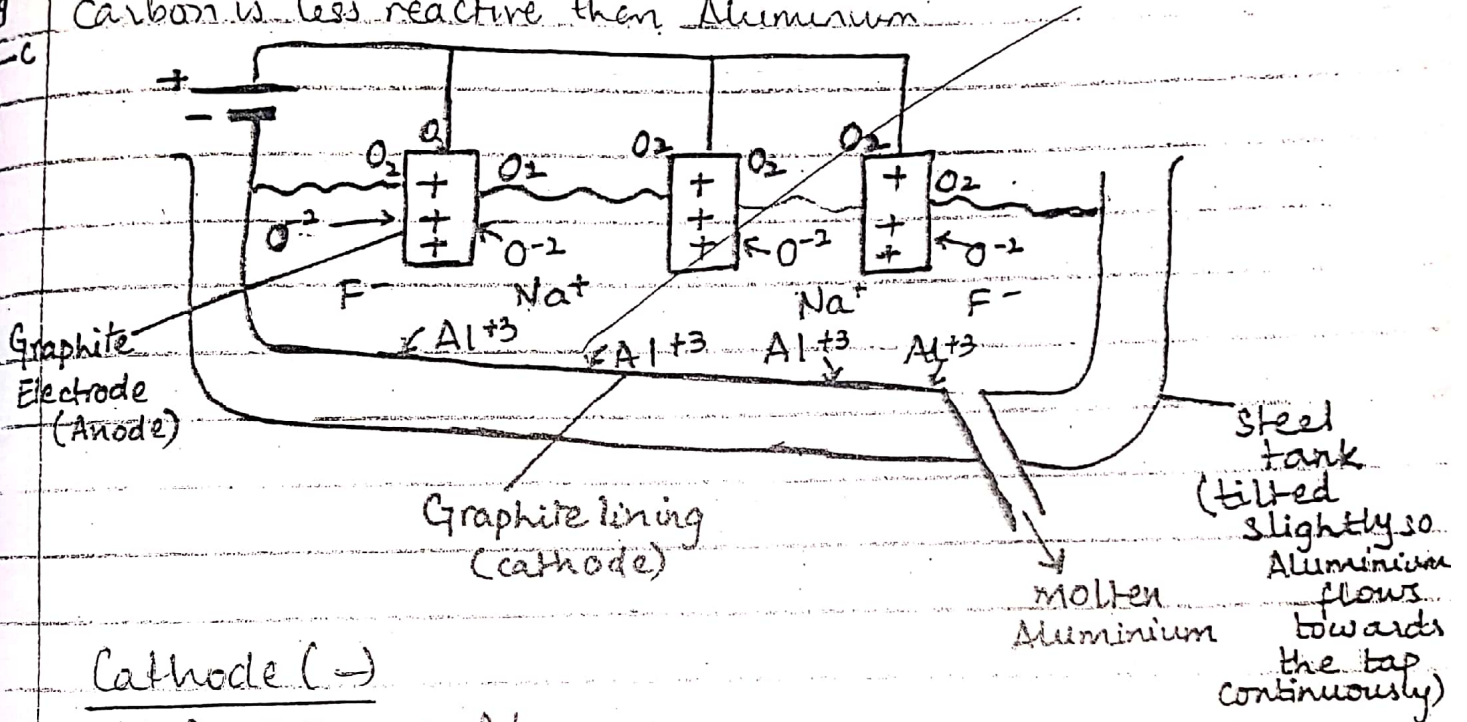 Carbon is less reactive than Aluminium
+
-
O₂ O₂ O₂ O₂ O₂ O₂ O₂
+ + +
+ + +
+ + +
O⁻² O⁻² O⁻² O⁻²
F⁻ Na⁺ Na⁺ F⁻
Al⁺³ Al⁺³ Al⁺³ Al⁺³
Graphite
Electrode
(Anode)
Graphite lining
(cathode)
molten
Aluminium
Steel
tank
(tilted
slightly so
Aluminium
flows
towards
the tap
continuously)
Cathode (-)